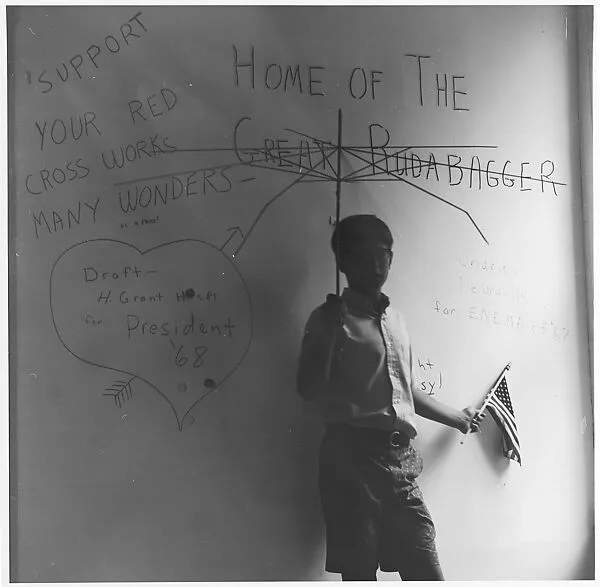 'SUPPORT
YOUR RED
CROSS WORKS
MANY WONDERS—
HOME OF THE
GREAT RUDABAGGER
Draft—
H. Grant
for President
'68
for ENEMA of '67
ht
sy)